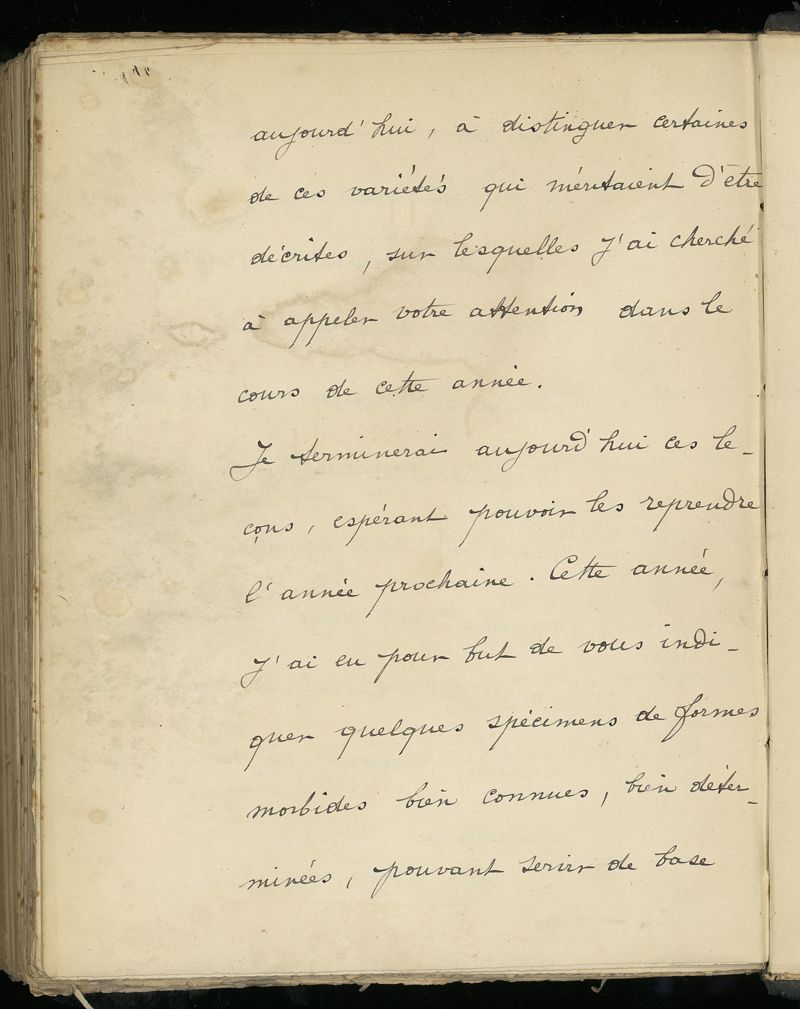 aujourd'hui, à distinguer certaines
de ces variétés qui méritaient d'être
décrites, sur lesquelles j'ai cherché
à appeler votre attention dans le
cours de cette année.
Je terminerai aujourd'hui ces le-
çons, espérant pouvoir les reprendre
l'année prochaine. Cette année,
j'ai eu pour but de vous indi-
quer quelques spécimens de formes
morbides bien connues, bien déter-
minées, pouvant servir de base